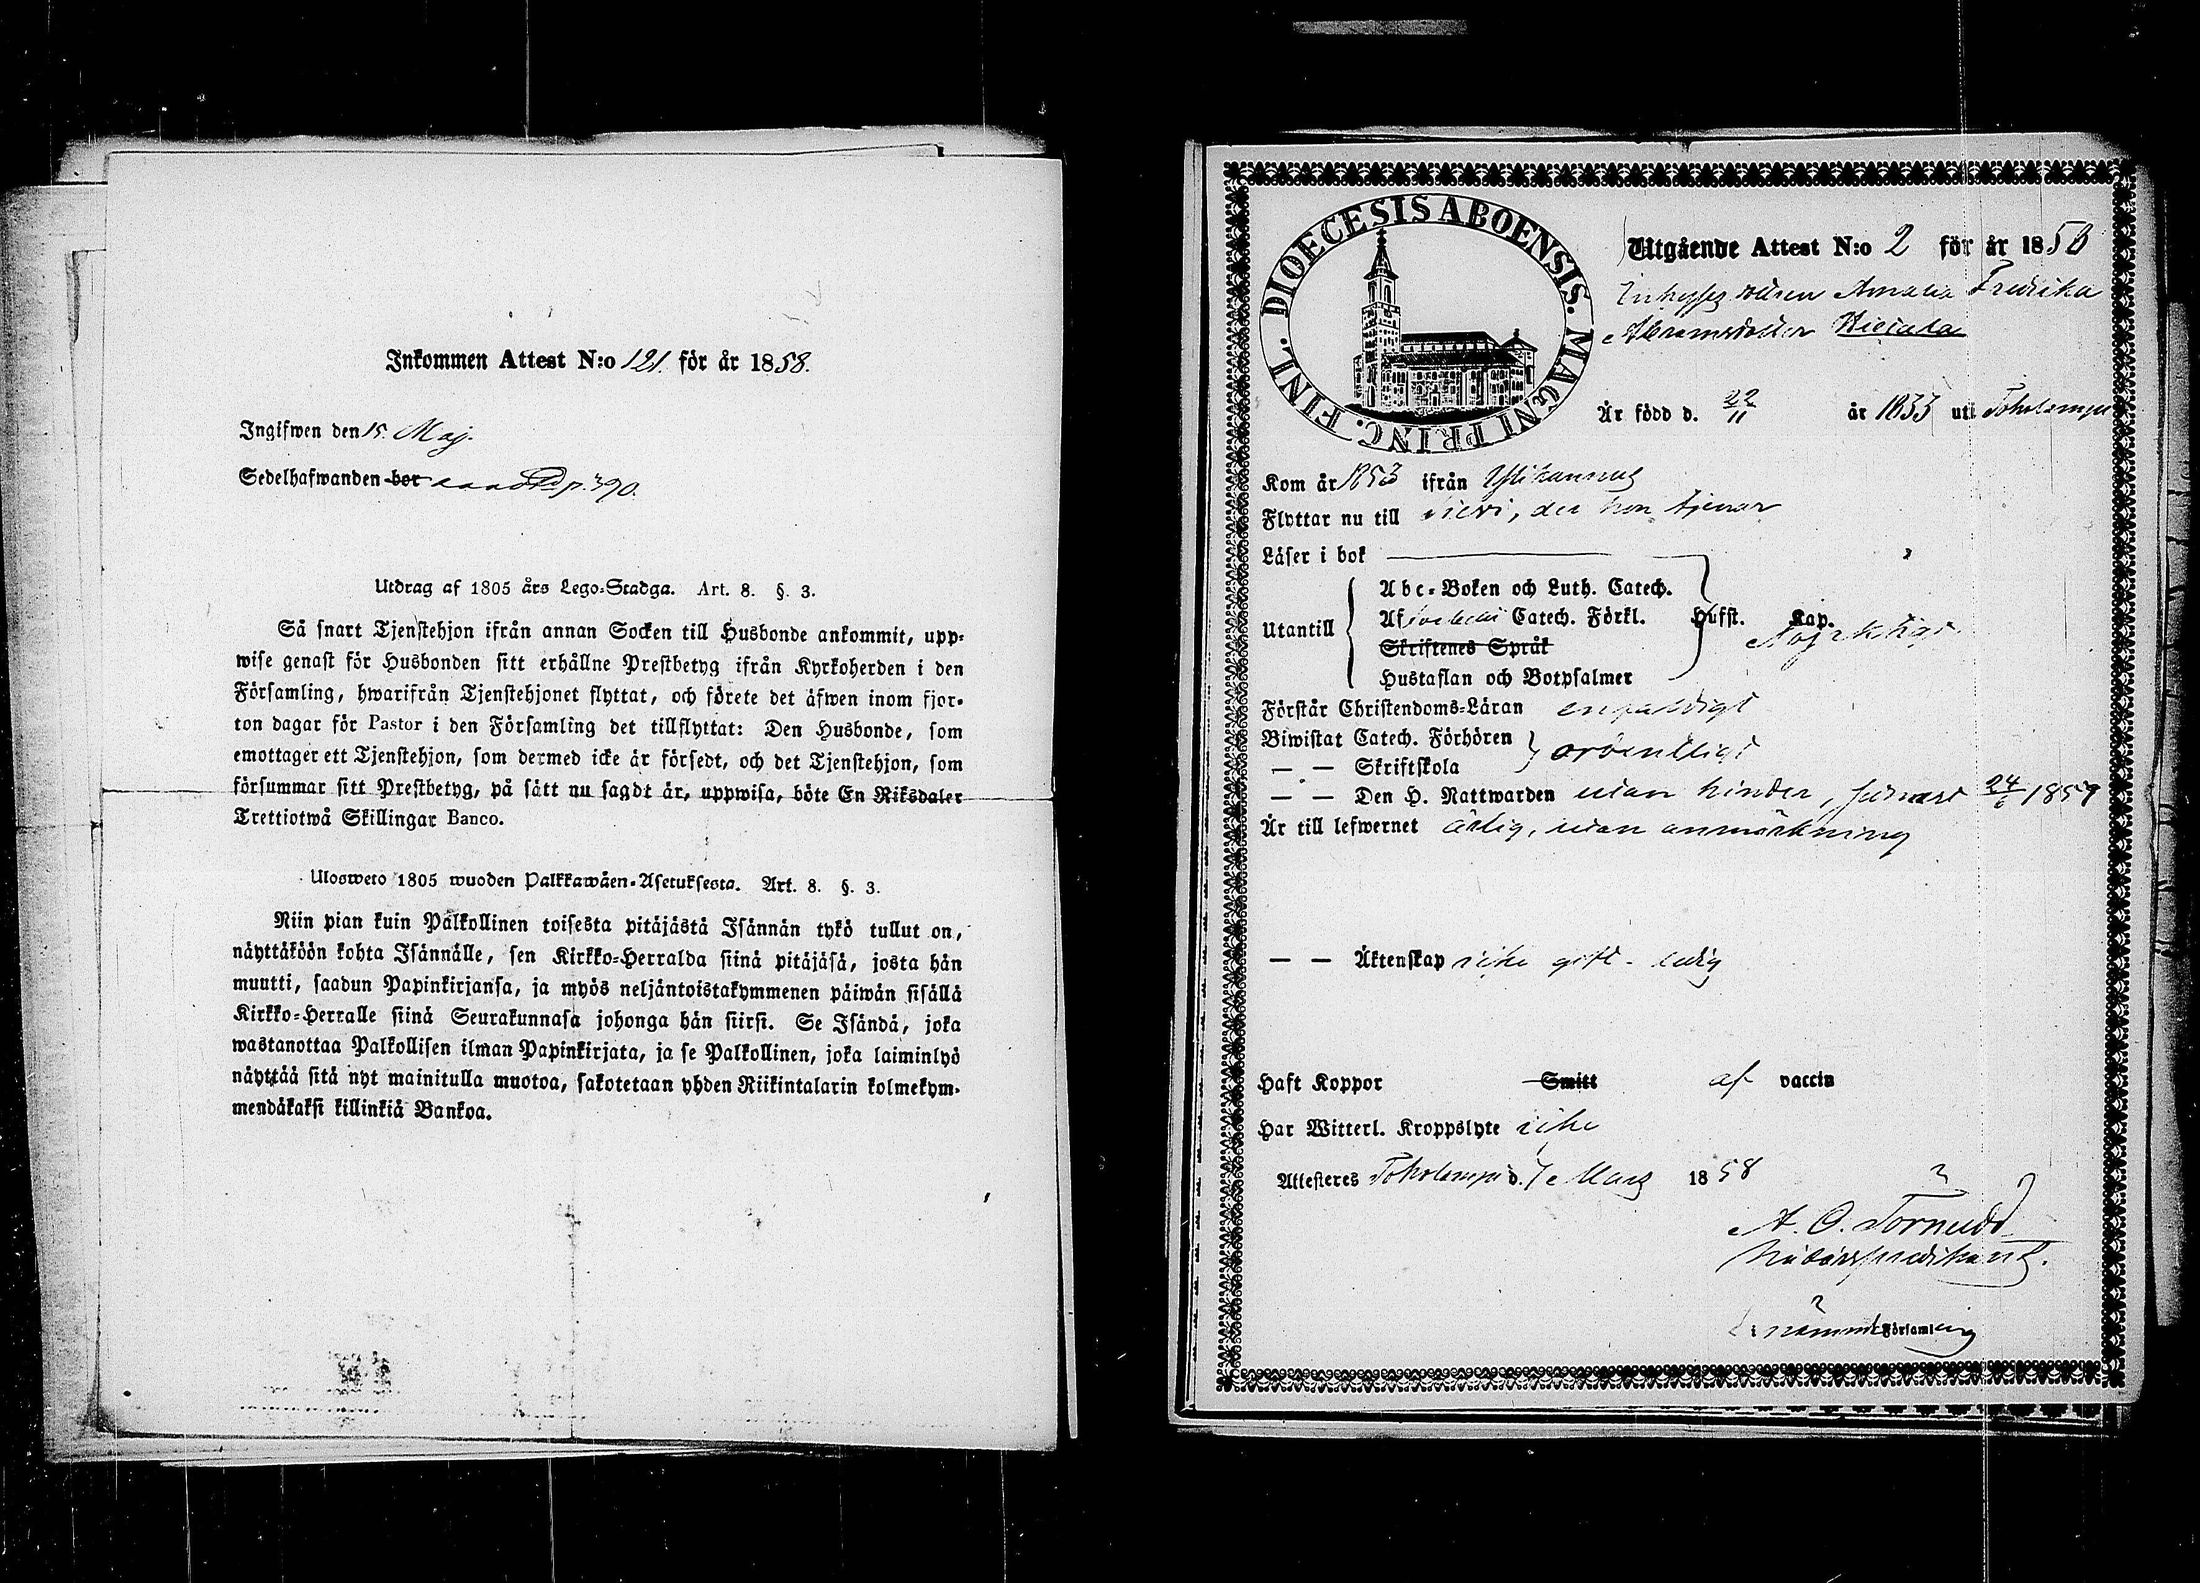 Inkommen Attest N:o 121. för år 1858.
Ingifwen den 15. Maj.
Sedelhafwanden bor p. 390.
Utdrag af 1805 års Lego-Stadga. Art. 8. §. 3.
Så snart Tjenstehjon ifrån annan Socken till Husbonde ankommit, upp-
wise genast för Husbonden sitt erhållne Prestbetyg ifrån Kyrkoherden i den
Församling, hwarifrån Tjenstehjonet flyttat, och förete det äfwen inom fjor-
ton dagar för Pastor i den Församling det tillflyttat: Den Husbonde, som
emottager ett Tjenstehjon, som dermed icke är försedt, och det Tjenstehjon, som
försummar sitt Prestbetyg, på sätt nu sagdt är, uppwisa, böte En Riksdaler
Trettiotwå Skillingar Banco.
Ulosweto 1805 wuoden Palkkawäen-Asetuksesta. Art. 8. §. 3.
Niin pian kuin Palkollinen toisesta pitäjästä Isännän tykö tullut on,
näyttäköön kohta Isännälle, sen Kirkko-Herralda siinä pitäjäsä, josta hän
muutti, saadun Papinkirjansa, ja myös neljäntoistakymmenen päiwän sisällä
Kirkko-Herralle siinä Seurakunnasa johonga hän siirsi. Se Isändä, joka
wastanottaa Palkollisen ilman Papinkirjata, ja se Palkollinen, joka laiminlyö
näyttää sitä nyt mainitulla muotoa, sakotetaan yhden Riikintalarin kolmekym-
mendäkaksi killinkiä Bankoa.
DIOECESIS ABOENSIS. MAGNI PRINC. FINL.
Utgående Attest N:o 2 för år 1858
Inhyses Amalia Fredrika
Abramsdotter
Är född d. 22/11 år 1833 uti Toholampi
Kom år 1853 ifrån Ylikannus
Flyttar nu till Sievi, der hon tjenar
Läser i bok
Utantill
Abc-Boken och Luth. Catech.
Af Catech. Förkl. Hufst. Kap.
Nöjaktigt
Skriftenes Språk
Hustaflan och Botpsalmer
Förstår Christendoms-Läran enfaldigt
Biwistat Catech. Förhören
ordentligt
— — Skriftskola
— — Den H. Nattwarden utan hinder, senast 24/6 1857
Är till lefwernet ärlig, utan anmärkning
— — Äktenskap icke gift - ledig
Haft Koppor Smitt af vaccin
Har Witterl. Kroppslyte icke
Attesteras Toholampi d. 7e Mars 1858
A. O. Törnudd
Nådårspredikant.
i nämnde Församling